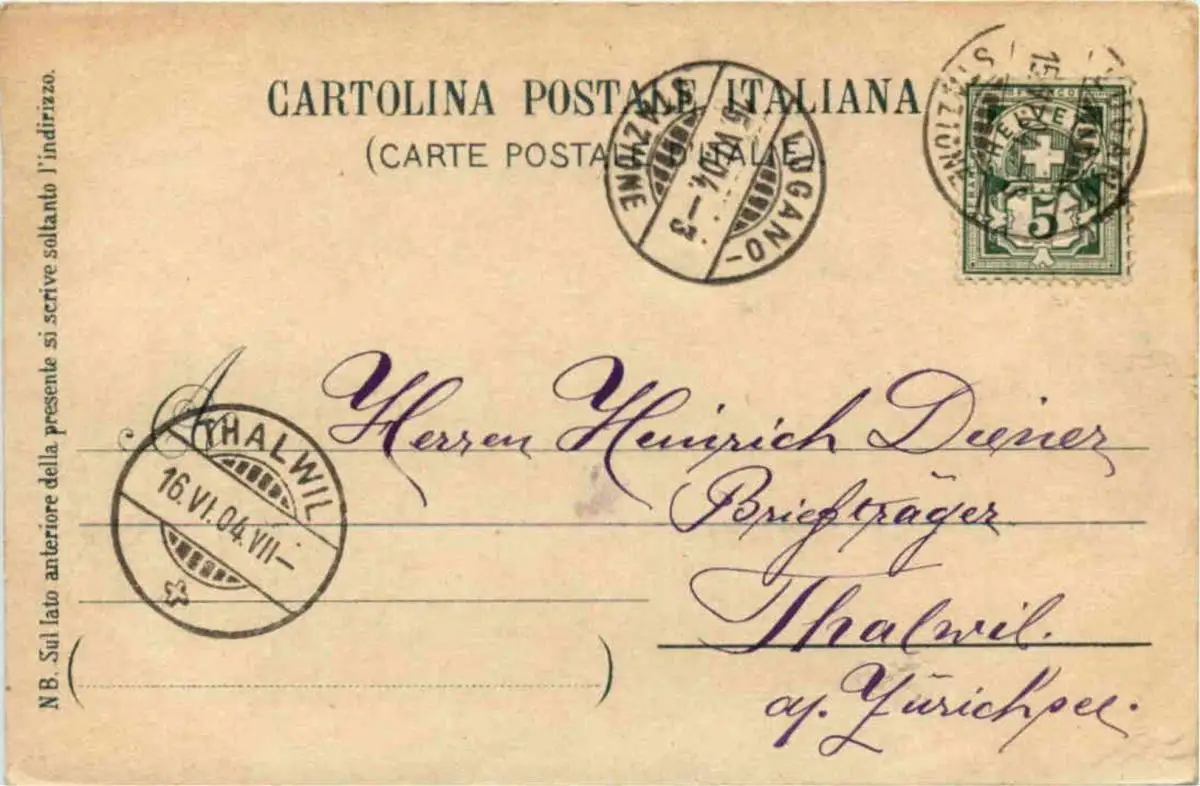 CARTOLINA POSTALE ITALIANA
(CARTE POSTALE D'ITALIE)
LUGANO-
STAZIONE
15.VI.04.-3
STAZIONE
15
FRANCO
HELVETIA
5
A
Herren Heinrich Diener
Briefträger
Thalwil.
a/. Zürichsee.
THALWIL
16.VI.04.VII-
NB. Sul lato anteriore della presente si scrive soltanto l'indirizzo.